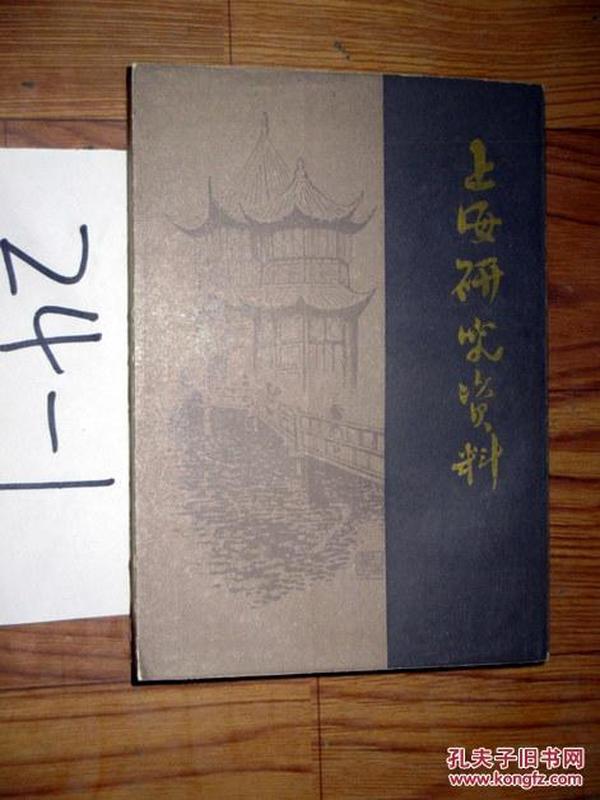 上海研究资料
24-1
孔夫子旧书网
www.kongfz.com